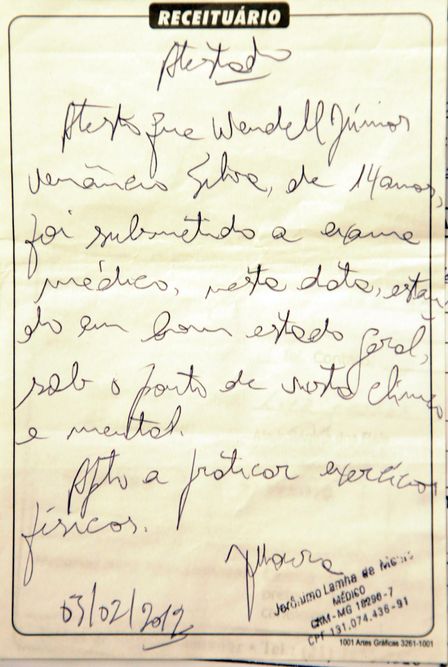 RECEITUÁRIO
Atestado
Atesto que Wendell Júnior
Venâncio Silva, de 14 anos,
foi submetido a exame
médico, nesta data, estan
do em bom estado geral,
sob o ponto de vista clínico
e mental.
Apto a praticar exercícios
físicos.
03/02/2012
Jerônimo Lamha de
MÉDICO
CRM-MG 18298-7
CPF 131.074.436-91
1001 Artes Gráficas 3261-1001